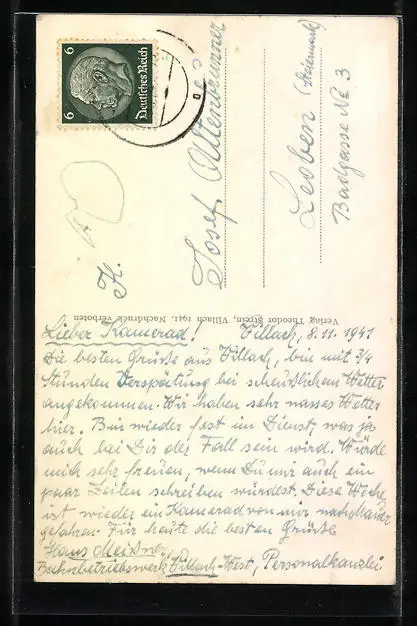 6 Deutsches Reich 6
H.
Josef Altenbrunner
Leoben (Steiermark)
Badgasse No 3
Verlag Theodor Strein, Villach 1941. Nachdruck verboten
Lieber Kamerad! Villach, 8.11.1941
Die besten Grüsse aus Villach, bin mit 3/4
Stunden Verspätung bei scheusslichem Wetter
angekommen. Wir haben sehr nasses Wetter
hier. Bin wieder fest im Dienst was ja
auch bei Dir der Fall sein wird. Würde
mich sehr freuen, wenn Du mir auch ein
paar Zeilen schreiben würdest. Diese Woche
ist wieder ein Kamerad von mir nachhause
gefahren. Für heute die besten Grüsse
Hans Meißner
Bahnbetriebswerk Villach-West, Personalkanzlei